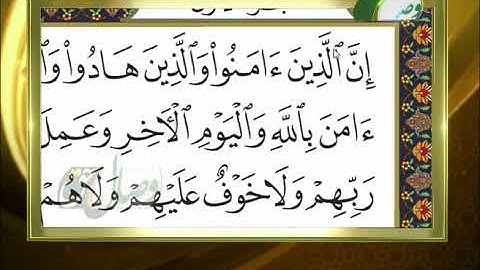 إِنَّ ٱلَّذِينَ ءَامَنُوا۟ وَٱلَّذِينَ هَادُوا۟ وَٱ
ءَامَنَ بِٱللَّهِ وَٱلْيَوْمِ ٱلْأَخِرِ وَعَمِلَ
رَبِّهِمْ وَلَا خَوْفٌ عَلَيْهِمْ وَلَا هُمْ